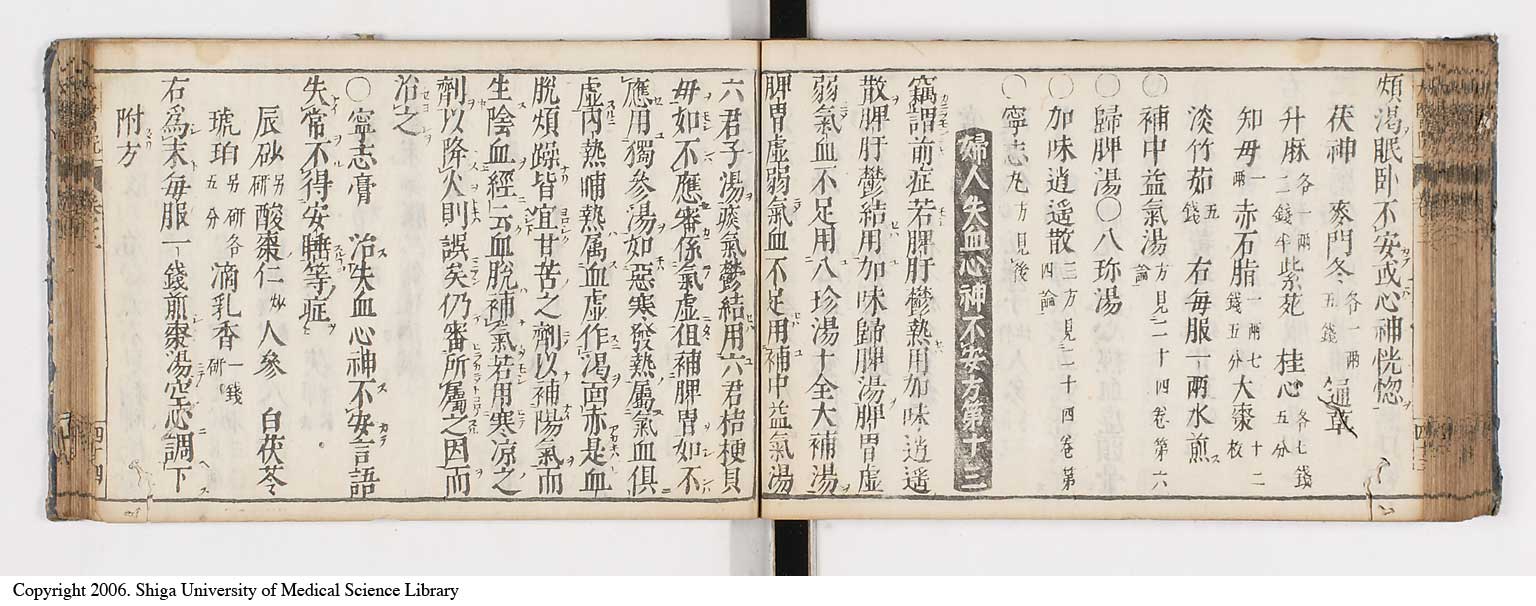 煩渴眠卧不安或心神恍惚
茯神 麥門冬各一兩五錢 通草
升麻各一兩二錢半 紫苑 桂心各七錢五分
知毋一兩 赤石脂一兩七錢五分 大棗十二枚
淡竹茹五錢 右每服一兩水煎
〇補中益氣湯方見二十四卷第六論
〇歸脾湯〇八珎湯
〇加味逍遥散三方見二十四卷第四論
〇寧志丸方見後
婦人失血心神不安方第十三
竊謂前症若脾肝欝熱用加味逍遥
散脾肝鬱結用加味歸脾湯脾胃虚
弱氣血不足用八珍湯十全大補湯
脾胃虚弱氣血不足用補中益氣湯
六君子湯痰氣鬱結用六君桔梗貝
毋如不應審係氣虚徂補脾胃如不
應用獨参湯如惡寒發熱屬氣血俱
虚内熱晡熱属血虚作渇面赤是血
脱煩躁皆宜甘苦之劑以補陽氣而
生陰血經云血脱補氣若用寒凉之
劑以降火則誤矣仍審所屬之因而
治之
〇寧志膏 治失血心神不安言語
失常不得安睡等症
辰砂另研 酸棗仁炒 人參 白茯苓
琥珀另研各五分 滴乳香一錢研
右爲末每服一錢煎棗湯空心調下
附方
四十四
Copyright 2006. Shiga University of Medical Science Library